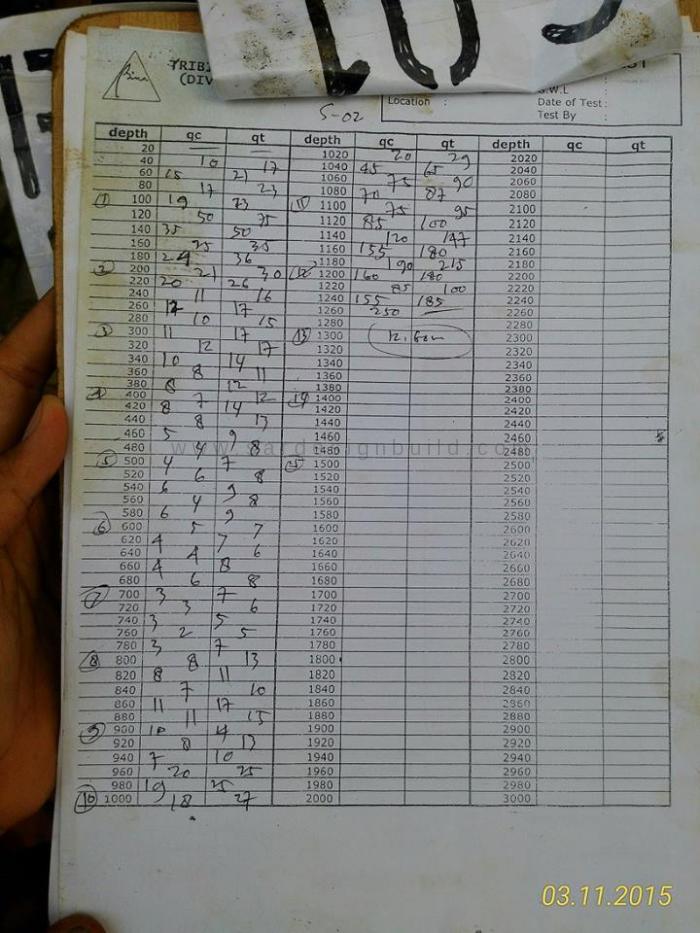 TRIBI
(DIV
Bina
S-02
G.W.L :
Location : Date of Test :
Test By :
depth qc qt depth qc qt depth qc qt
20 — — 1020 20 29 2020
40 10 17 1040 45 65 2040
60 15 21 1060 75 90 2060
80 17 23 1080 70 87 2080
1 100 19 23 11 1100 75 95 2100
120 50 75 1120 85 100 2120
140 35 50 1140 120 147 2140
160 25 35 1160 155 180 2160
180 24 36 1180 190 215 2180
2 200 21 30 12 1200 160 180 2200
220 20 26 1220 85 100 2220
240 11 16 1240 155 185 2240
260 12 17 1260 250 — 2260
280 10 15 1280 2280
3 300 11 17 13 1300 12.60m 2300
320 12 17 1320 2320
340 10 14 1340 2340
360 8 11 1360 2360
380 8 12 1380 2380
4 400 7 12 14 1400 2400
420 8 14 1420 2420
440 8 13 1440 2440
460 5 9 1460 2460
480 4 8 1480 2480
5 500 4 7 15 1500 2500
520 6 8 1520 2520
540 6 9 1540 2540
560 4 8 1560 2560
580 6 9 1580 2580
6 600 5 7 1600 2600
620 4 7 1620 2620
640 4 6 1640 2640
660 4 8 1660 2660
680 6 8 1680 2680
7 700 3 7 1700 2700
720 3 6 1720 2720
740 3 5 1740 2740
760 2 5 1760 2760
780 3 7 1780 2780
8 800 8 13 1800 2800
820 8 11 1820 2820
840 7 10 1840 2840
860 11 17 1860 2860
880 11 15 1880 2880
9 900 10 4 1900 2900
920 8 13 1920 2920
940 7 10 1940 2940
960 20 25 1960 2960
980 19 25 1980 2980
10 1000 18 27 2000 3000
03.11.2015